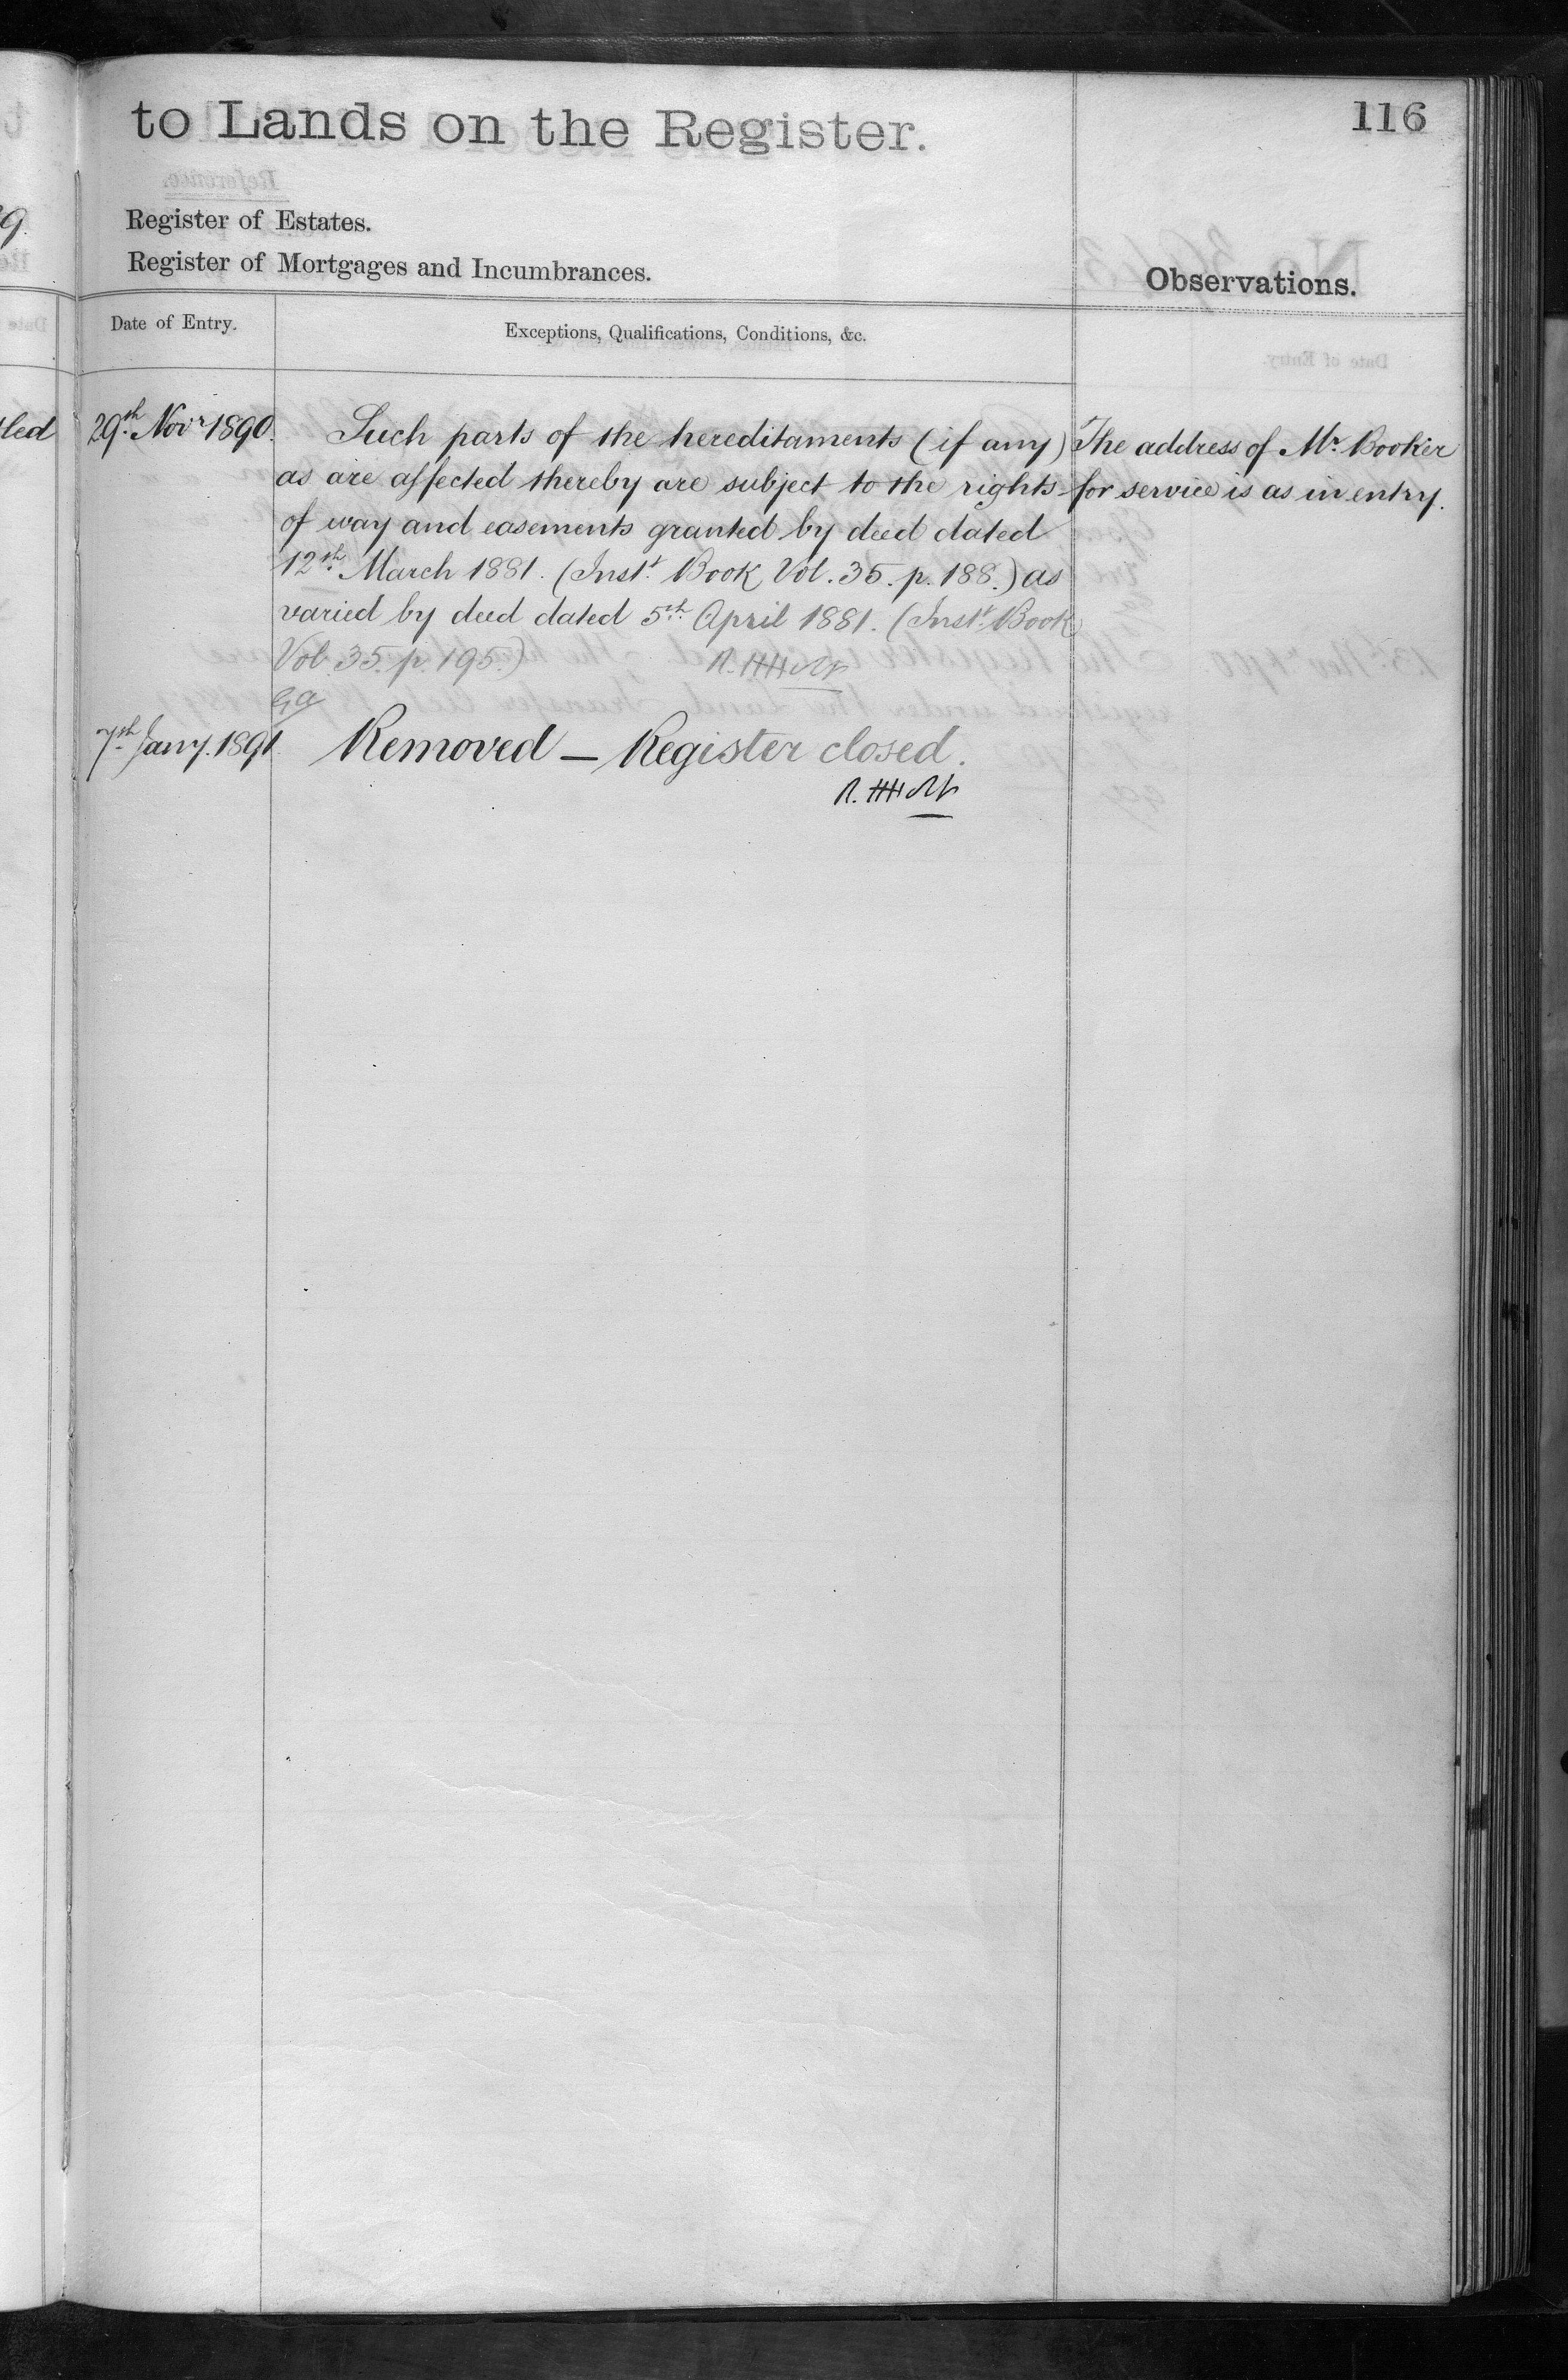 to Lands on the Register.
116
Register of Estates.
Register of Mortgages and Incumbrances.
Observations.
Date of Entry.
Exceptions, Qualifications, Conditions, &c.
29th. Novr 1890.
Such parts of the hereditaments (if any)
as are affected thereby are subject to the rights
of way and easements granted by deed dated
12th. March 1881. (Inst.t Book Vol. 35. p. 188.) as
varied by deed dated 5th. April 1881. (Inst.t Book
Vol. 35. p. 195.)
The address of Mr. Booker
for service is as in entry.
7th Jany. 1891.
Removed — Register closed.